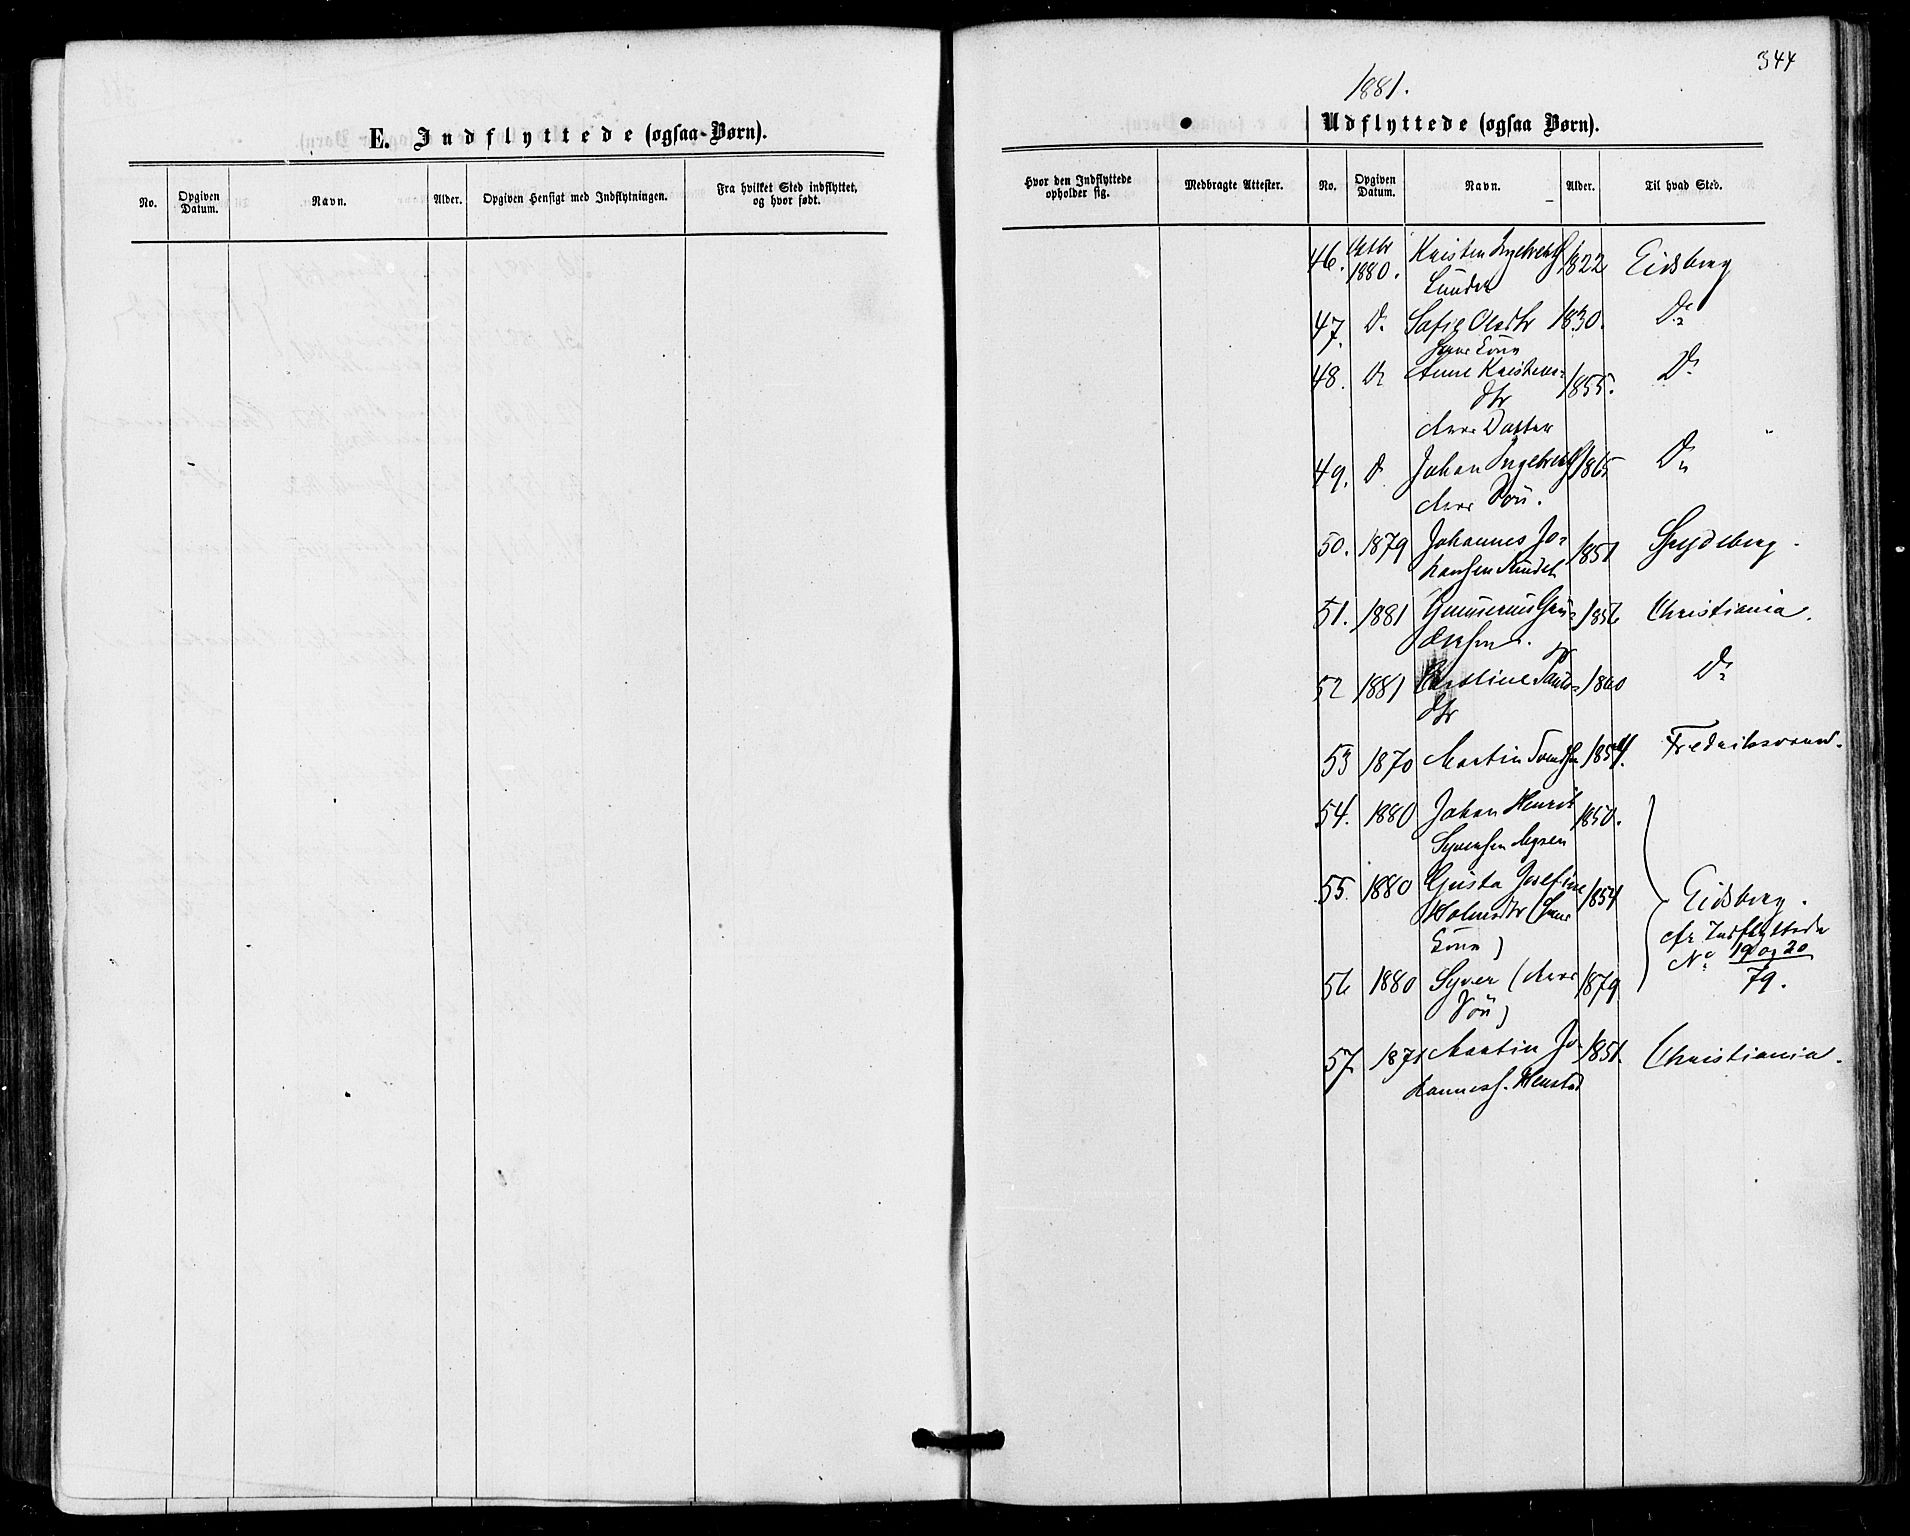 344
1881.
E. Indflyttede (ogsaa Børn).
Udflyttede (ogsaa Børn).
No.
Opgiven Datum.
Navn.
Alder.
Opgiven Hensigt med Indflytningen.
Fra hvilket Sted indflyttet, og hvor født.
Hvor den Indflyttede opholder sig.
Medbragte Attester.
No.
Opgiven Datum.
Navn.
Alder.
Til hvad Sted.
46. Octbr 1880. Kristen Ingebrets 1822 Eidsberg
47. Do Sofie Olsdtr 1830. Do
hans Kone
48. Do Anne Kristens- 1855. Do
dtr
deres Datter
49. Do Johan Ingebrets 1865 Do
deres Søn.
50. 1879 Johannes Jo- 1851 Spydeberg.
hansen
51. 1881 1856 Christiania.
52 1881 1860 Do
dtr
53 1870 Martin 1854. Fredriksværn.
54. 1880 Johan Henrik 1850.
Syversen Mysen
55. 1880 Gusta Josefine 1854 Eidsberg.
Holmsdtr (hans
Kone)
cfr Indflyttede
No 19 og 20
79.
56 1880 Syver (deres 1879
Søn)
57. 1871 Martin Jo- 1851. Christiania.
hanness. Henstad